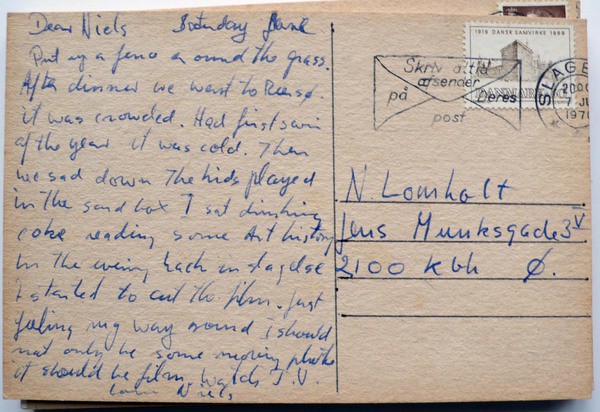 Dear Niels Saturday
Put up a fence around the grass.
After dinner we went to Reersø
it was crowded. Had first swim
of the year it was cold. Then
we sad down The kids played
in the sandbox I sat drinking
coke reading some Art history
In the evening back in Slagelse
I started to cut the film. Just
feeling my way around I should
not only be some moving photos
it should be film, Watch T.V.
Love Niels
1919 DANSK SAMVIRKE 1969
DANMARK
Skriv altid
afsender
på Deres
post
SLAGE
20.00
7 JU
1970
N. Lomholt
Jens Munksgade 3 V
2100 Kbh Ø.